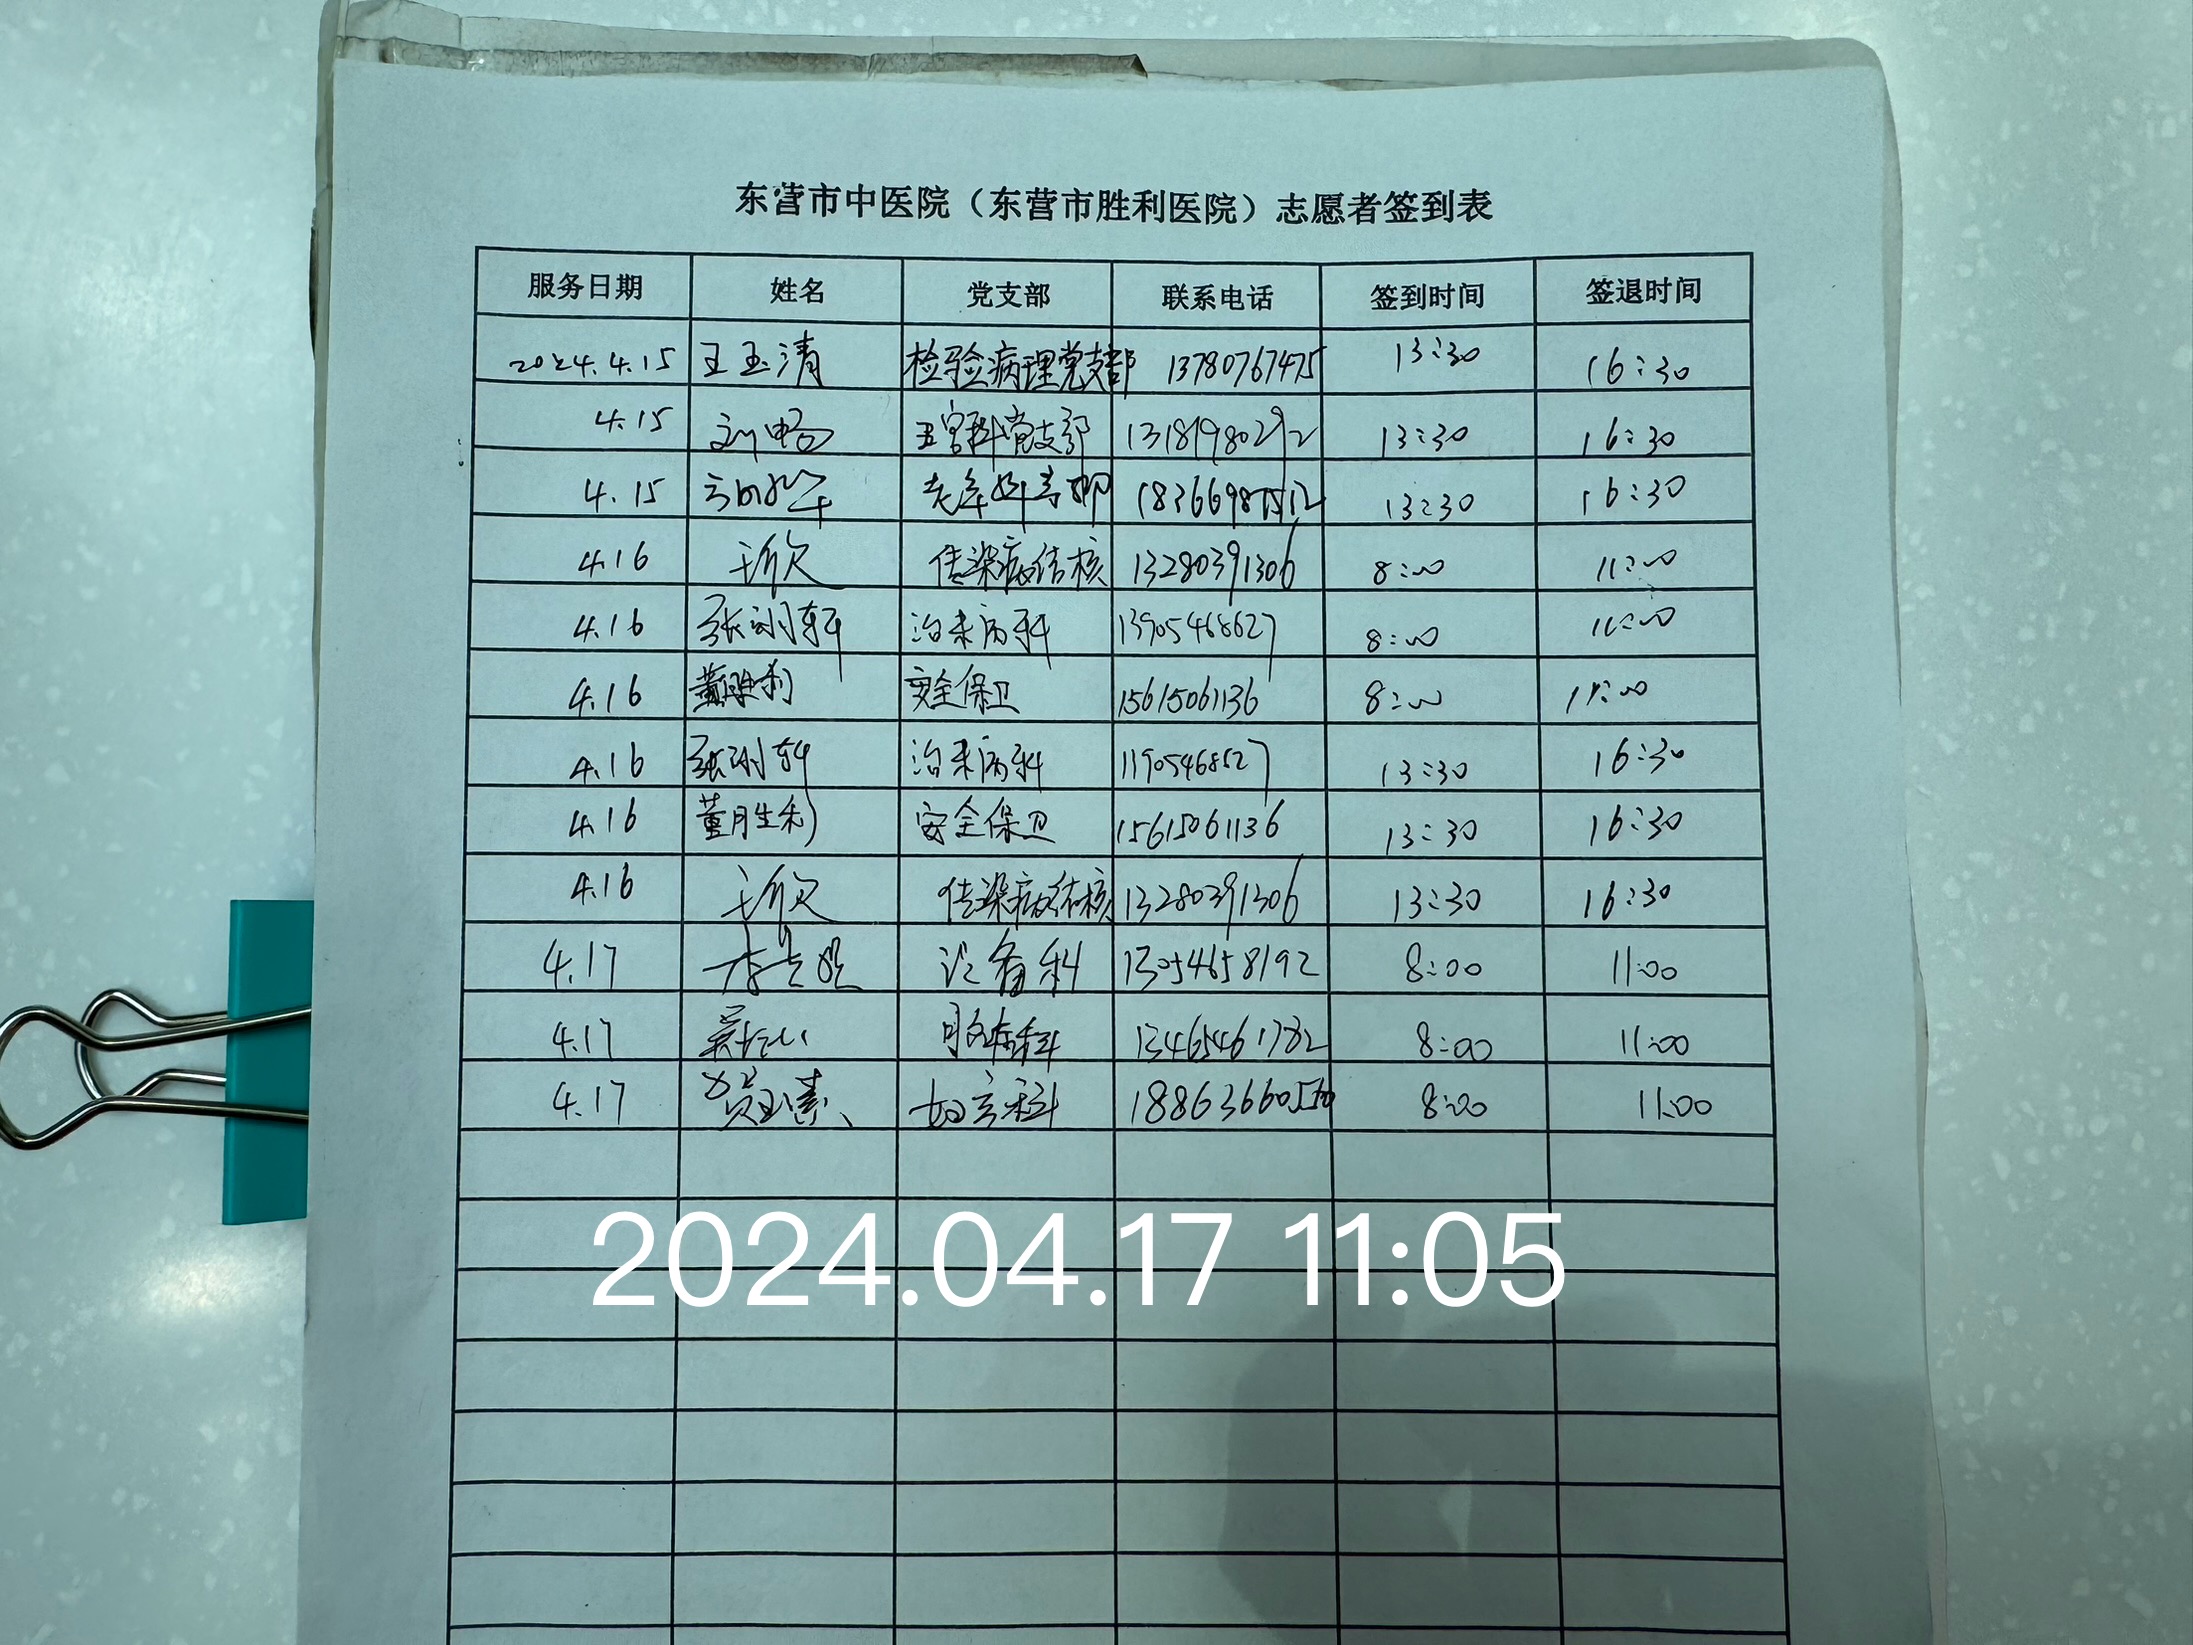 东营市中医院（东营市胜利医院）志愿者签到表
服务日期 姓名 党支部 联系电话 签到时间 签退时间
2024.4.15 王玉清 检验病理党支部 13780767475 13:30 16:30
4.15 刘畅 五官科党支部 13181980292 13:30 16:30
4.15 老年 13:30 16:30
4.16 王欣 传染病结核 13280391306 8:00 11:00
4.16 张 轩 治未病科 13905468627 8:00 11:00
4.16 董胜利 安全保卫 15615061136 8:00 11:00
4.16 张 轩 治未病科 13:30 16:30
4.16 董胜利 安全保卫 15615061136 13:30 16:30
4.16 王欣 传染病结核 13280391306 13:30 16:30
4.17 李 设备科 13054658192 8:00 11:00
4.17 科 13465461782 8:00 11:00
4.17 贺玉素 妇产科 8:00 11:00
2024.04.17 11:05